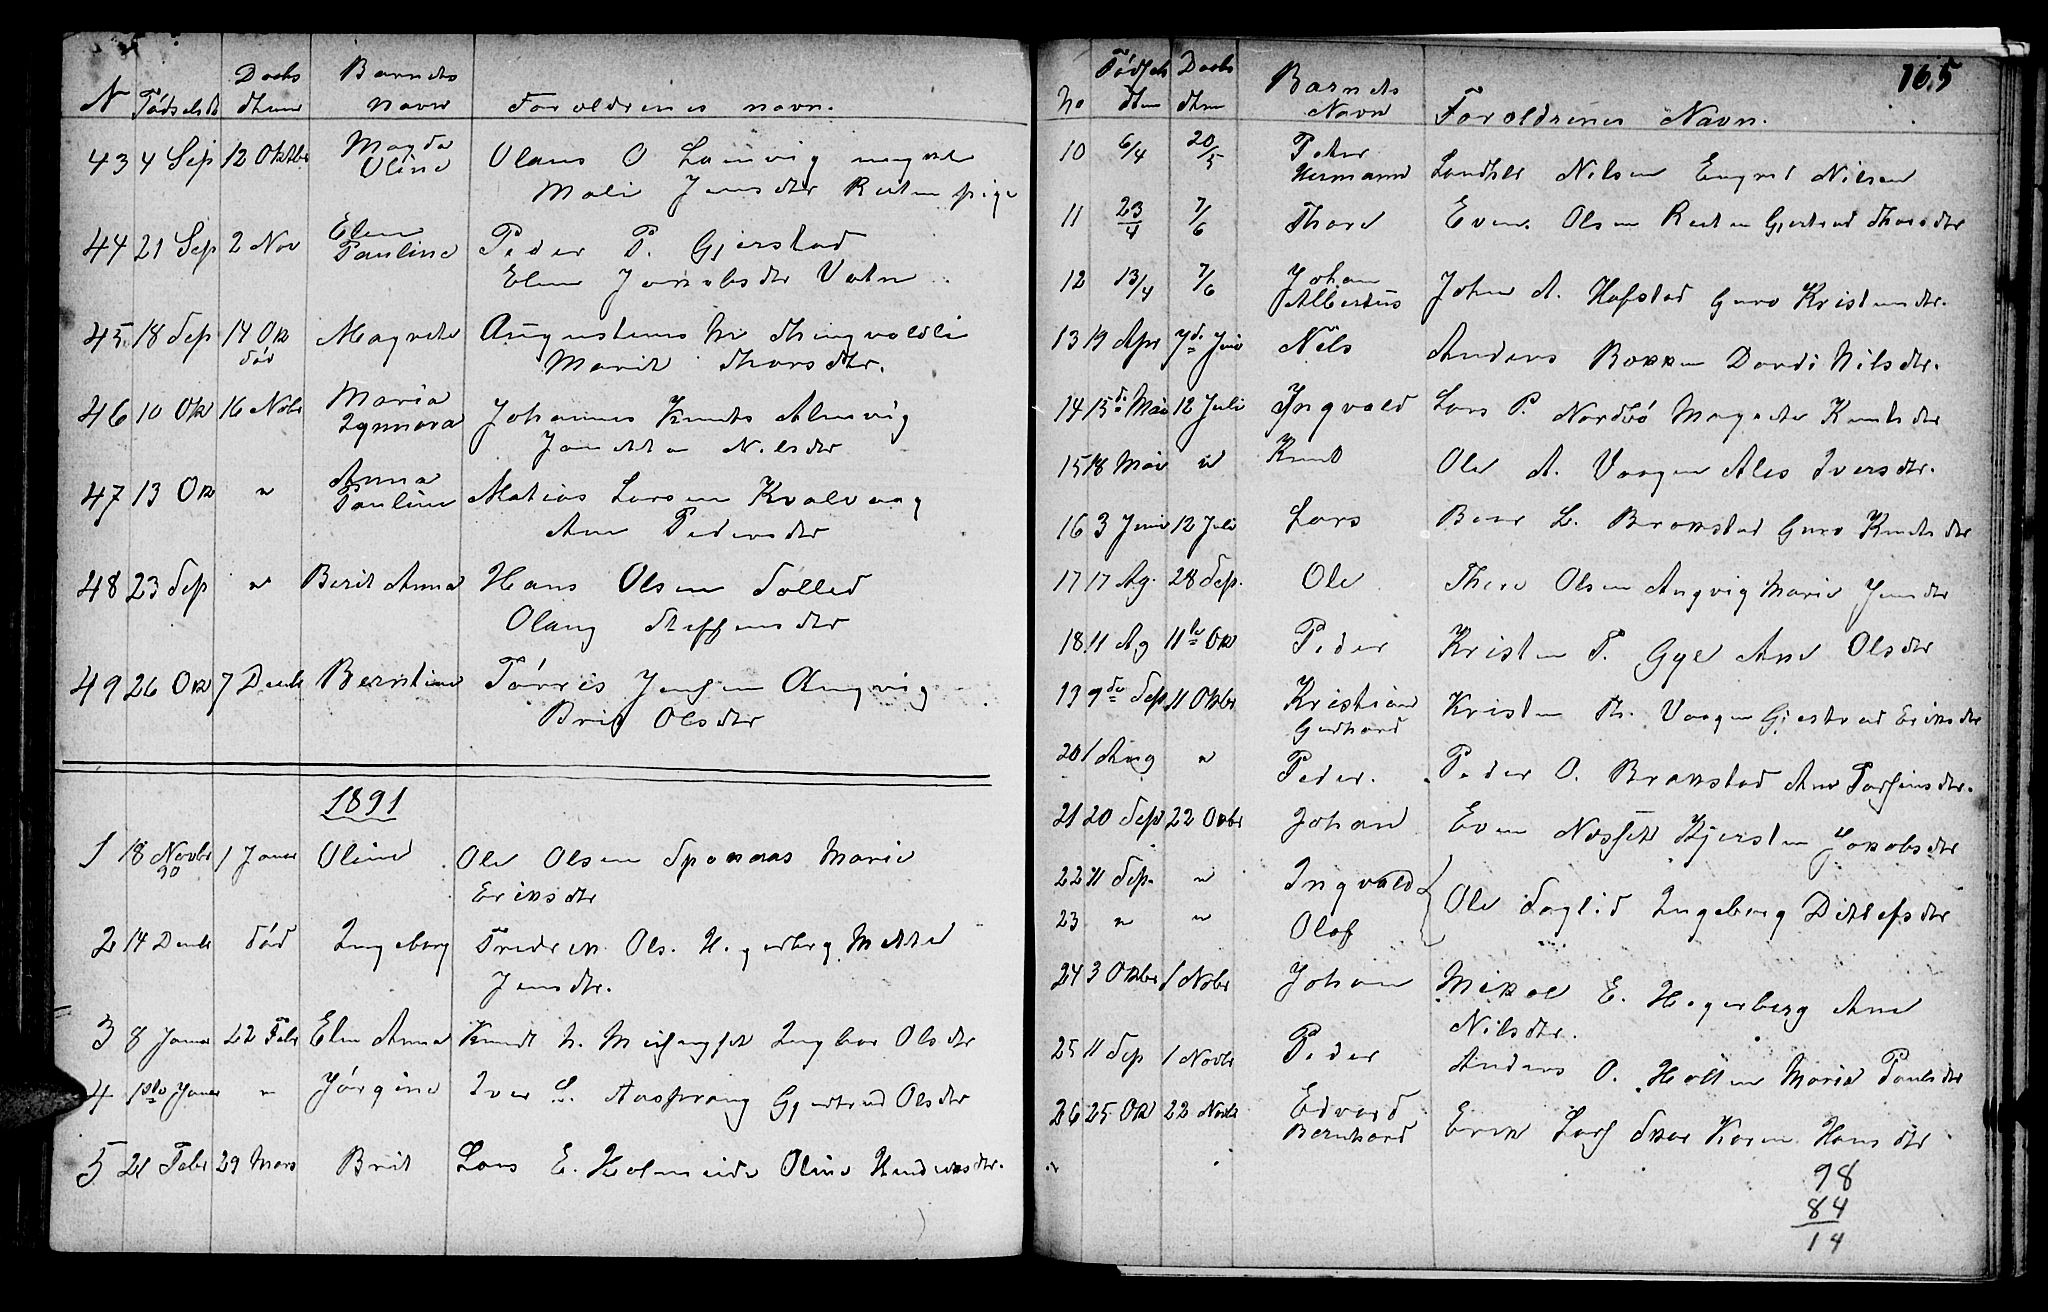 N Fødselsd Daabs dhum Barnets navn Foroldrenes navn.
43 4 Sep 12 Oktbr Magda Oline Olaus O
Mali Jensdtr Reiten pige
44 21 Sep 2 Nov Elen Pauline Peder P. Gjerstad
Elen Jakobsdtr Vatn
45 18 Sep 14 Ok død Magrete
Marit Thorsdtr.
46 10 Ok 16 Nobr Maria Johannes Knuts Almvig
Nilsdtr
47 13 Ok " Anna Pauline Matias Larsen Kvalvaag
Ane Pedersdtr
48 23 Sep " Berit Anna Hans Olsen Solled
Olaug Steffensdtr
49 26 Ok 7 Decb Berntine Tørris Jensen Angvig
Brit Olsdtr
1891
1 18 Novbr 90 1 Janr Oline Ole Olsen Sponaas Marie
Eriksdtr
2 14 Decbr død Ingeborg Fredrik Ols. Hegerberg Mette
Jensdtr.
3 8 Janr 22 Febr Elen Anna Knudt N. Olsdtr
4 1ste Janr " Jørgine Iver L. Aasprang Gjertrud Olsdtr
5 21 Febr 29 Mars Brit Lars E. Holmeide Oline
165
No Fødsels dtm Daabs dtm Barnets Navn Foroldrenes Navn.
10 6/4 20/5 Peter Hermann Nilsen Nilsen
11 23/4 7/6 Thore Even Olsen Reiten Gjertrud Thoresdtr
12 13/4 7/6 Johan Albertus John A. Hofstad Guro Kristensdtr.
13 19 Apr 7d. Juni Nils Anders Bakken Dordi Nilsdtr.
14 15d. Mai 12 Juli Ingvald Lars P. Nordbø Magrete Knutsdtr
15 18 Mai " Knut Ole A. Vaagen Ales Iversdtr.
16 3 Juni 12 Juli Lars L. Brakstad Guro Knutsdtr
17 17 Ag. 28 Sep. Ole Thore Olsen Angvig Marie Jensdtr
18. 11 Ag 11te Ok Peder Kristen P. Gyl Ane Olsdtr
19 9de Sep 11 Oktbr Kristian Gerhard Kristen Vaagen Gjertrud Eriksdtr
20 1 Aug " Peder. Peder O. Brakstad Ane Torfinsdtr.
21 20 Sep 22 Okbr Johan Even Kjersten Jakobsdtr
22 11 Sep. " Ingvald
23 " " Olaf Ole Foglid Ingeborg Ditlefsdtr
24 3 Okbr 1 Nobr Johan Mikal E. Hegerberg Ane
Nilsdtr.
25 11 Sep 1 Novbr Peder Anders O. Holten Marie Paulsdtr
26 25 Ok 22 Novbr Edvard Bernhard Erik Lars Skar Karen Hansdtr
98
84
14